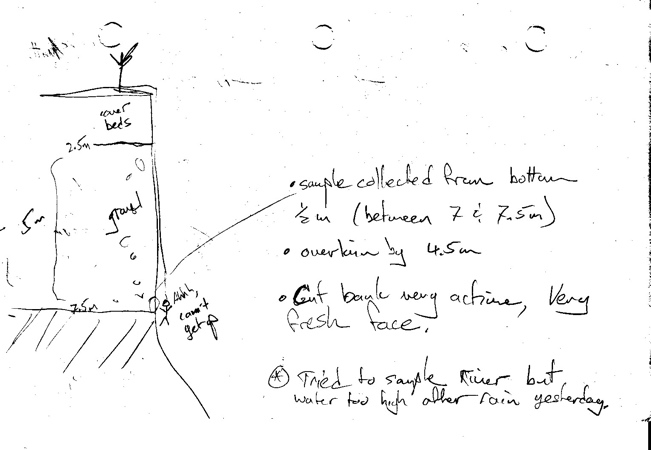 cover
beds
2.5m
5m
gravel
7.5m
Ahhh,
can't
get up
• sample collected from bottom
½m (between 7 & 7.5m)
• overlain by 4.5m
• Cut bank very active, Very
fresh face.
* Tried to sample river but
water too high after rain yesterday.